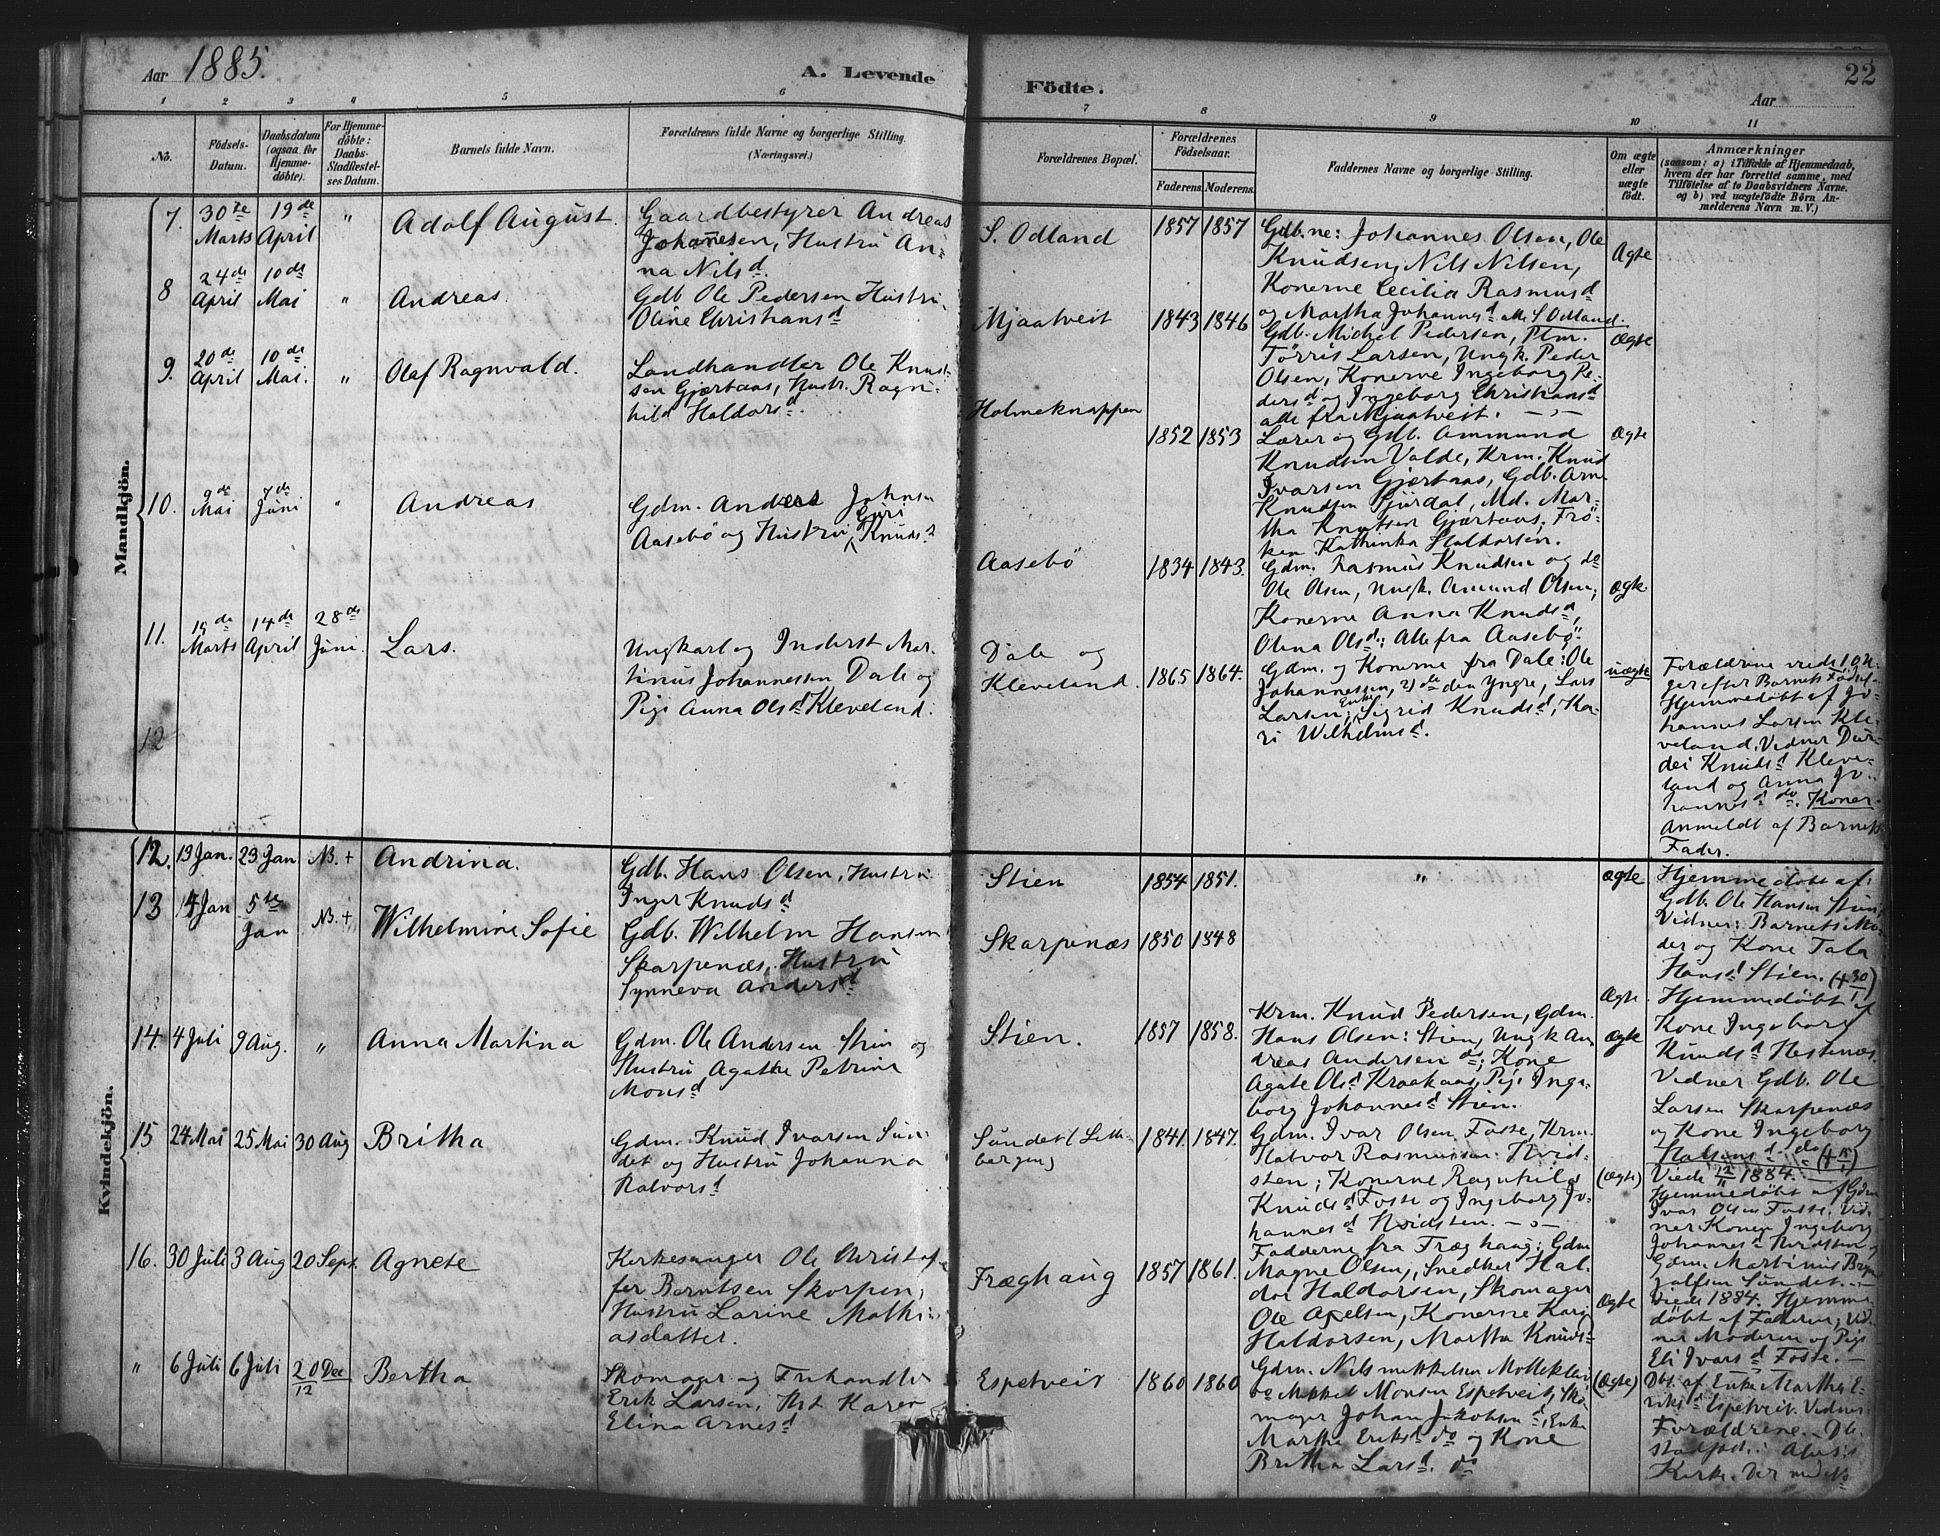 Aar 1885.
A. Levende
Födte.
22
Aar
1
2
3
4
5
6
7
8
9
10
11
No.
Födsels-
Datum.
Daabsdatum
(ogsaa for
Hjemme-
döbte).
For Hjemme-
döbte:
Daabs-
Stadfæstel-
ses Datum.
Barnets fulde Navn.
Forældrenes fulde Navne og borgerlige Stilling.
(Næringsvei.)
Forældrenes Bopæl.
Forældrenes
Födselsaar.
Faderens.
Moderens.
Faddernes Navne og borgerlige Stilling.
Om ægte
eller
uægte
födt.
Anmærkninger
(saasom: a) i Tilfælde af Hjemmedaab,
hvem der har forrettet samme, med
Tilföielse af to Daabsvidners Navne.
og b) ved uægtefödte Börn An-
melderens Navn m. V.)
Mandkjön.
7. 30te Marts 19de April " Adolf August
Gaardbestyrer Andreas
Johannesen, Hustru An-
na Nilsd.
S. Odland 1857 1857
Gdb.ne: Johannes Olsen, Ole
Knudsen, Nils Nilsen,
Konerne Cecilia Rasmusd
og Martha Johannesd alle S Odland.
Ægte
8 24de April 10de Mai " Andreas.
Gdb. Ole Pedersen Hustru
Oline Christiansd
Mjaatveit 1843 1846
Gdb. Michel Pedersen, Plm.
Törris Larsen, Ungk. Peder
Olsen, Konerne Ingeborg Pe-
dersd og Ingeborg Christiansd
alle fra Mjaatveit.
Ægte
9. 20de April 10de Mai. " Olaf Ragnvald.
Landhandler Ole Knut-
sen Gjærtaas, Hustr. Ragn-
hild Haldorsd.
Holmeknappen
1852 1853
Lærer og Gdb. Ammund
Knudsen Valde, Krm. Knud
Ivarsen Gjærtaas, Gdb. Arne
Knudsen Fjürdal, Md. Mar-
tha Knutsen Gjærtaas. Frö-
ken Kathinka Haldorsen.
Ægte
10. 9de Mai 7de Juni " Andreas
Gdm. Anders Johnsen
Aasebö og Hustru Guri Knudsd
Aasebö 1834 1843.
Gdm. Rasmus Knudsen og do
Ole Olsen, Ungk. Amund Olsen,
Konerne Anna Knudsd,
Olina Olsd: Alle fra Aasebö.
Ægte
11. Marts 14de April 28de Juni. Lars.
Ungkarl og Inderst Mar-
tinus Johannessen Dale og
Pige Anna Olsd Kleveland.
Dale og
Kleveland. 1865 1864.
Gdm. og Konerne fra Dale: Ole
Johannessen, 2) de den Yngre, Lars
Larsen, Enke Sigrid Knudsd, Ka-
ri Wilhelmsd.
uægte
Forældrene viede 10 U-
ger efter Barnets Födsel.
Hjemmedöbt af Jo-
hannes Larsen Kle-
veland. Vidner Dur-
dei Knudsd Kleve-
land og Anna Jo-
hannesd do. Koner.
Anmeldt af Barnets
Fader.
12
Kvindekjön.
12. 13 Jan. 23 Jan N. + Andrina.
Gdb. Hans Olsen, Hustru
Inger Knudsd
Stien 1854 1851. " Ægte
Hjemmedöbt af:
Gdb. Ole Hansen Stien,
Vidner: Barnets Mo-
der og Kone Tala
Hansd Stien. (+ 30/1)
13 14 Jan 5te Jan N. + Wilhelmine Sofie
Gdb. Wilhelm Hansen
Skarpenæs, Hustru
Synneva Andersd
Skarpenæs 1850 1848
Ægte
Hjemmedöbt af
Kone Ingeborg
Knudsd Hestenæs.
Vidner Gdb. Ole
Larsen Skarpenæs
og Kone Ingeborg
do
14. 4 Juli 9 Aug. " Anna Martina
Gdm. Ole Andersen Stien og
Hustru Agathe Petrine
Monsd
Stien. 1857 1858.
Krm. Knud Pedersen, Gdm.
Hans Olsen: Stien, Ungk An-
dreas Andersen do; Kone
Agate Olsd Kraakaas, Pige Inge-
borg Johannesd Stien.
Ægte
Viede 1884.
15 24 Mai 25 Mai 30 Aug Britha
Gdm. Knud Ivarsen Sun-
det og Hustru Johanna
Halvorsd
Sundet
1841. 1847.
Gdm. Ivar Olsen Fosse, Krm.
Halvor Rasmussen Hvid-
sten; Konerne Ragnhild
Knudsd Fosse og Ingeborg Jo-
hannesd Hvidsten.
(ægte)
Hjemmedöbt af Gdm
Ivar Olsen Fosse. Vid-
ner Konen Ingeborg
Johannesd Hvidsten og
Gdm. Martinus Bryn-
jolfsen Sundet.
16. 30 Juli 3 Aug 20 Sept. Agnete
Kirkesanger Ole Christof-
fer Berntsen Skorpen,
Hustru Larine Mathi-
asdatter.
Fræghaug 1857 1861.
Fadderne fra Fræghaug: Gdm
Magne Olsen, Snedker Hal-
dor Haldorsen, Skomager
Ole Apelsen, Konerne Kari
Haldorsen, Martha Knuds-
Ægte
Viede 1884. Hjemme-
döbt af Faderen, Vid-
ner Moderen og Pige
Eli Ivarsd Fosse.
" 6 Juli 6 Juli 20/12 Dec Bertha
Skomager og Frihandler
Erik Larsen, Hst Karen
Elina Arnesd
Espetveit 1860 1860
Gdm. Nils Mikkelsen Mollekleiv
og Mikkel Monsen Espetveit, Sko-
mager Johan Jakobsen do, Enke
Martha Eriksd do og Kone
Britha Larsd. do
(ægte)
Dbt. af Enke Martha E-
riksd Espetveit. Vidner:
Forældrene. Db.
stadfæst. i Alver
Kirke.